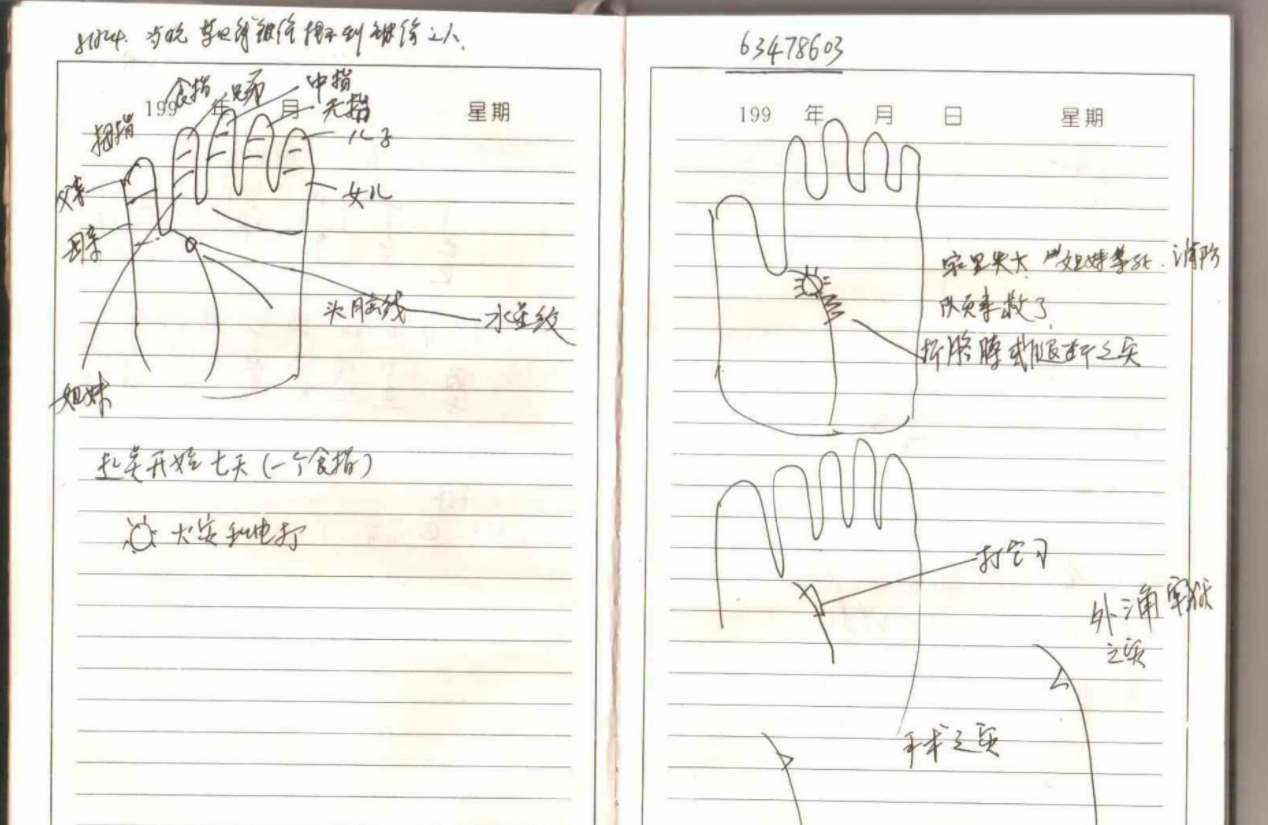 199 年 月 星期
食指
兄弟
中指
无指
拇指
儿子
父亲
女儿
母亲
头脑线
水星纹
姐妹
开始七天(一个食指)
火灾和电打
63478603
199 年 月 日 星期
家里失火 姐妹 消防
队员来救了
折胳膊或腿 之灾
打官司
外三角牢狱
之灾
手术之灾